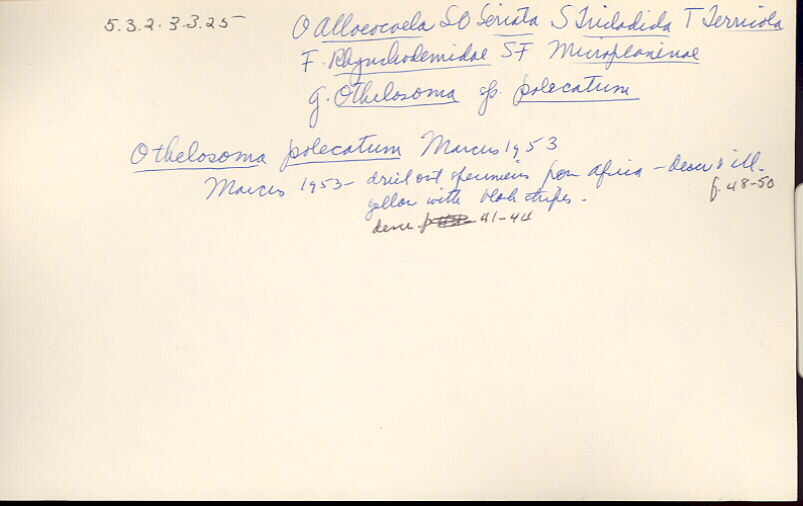 5.3.2.3.3.25 O Alloeocoela SO Seriata S Tricladida T Terricola
F. Rhynchodemidae SF Microplaninae
g. Othelosoma sp. polecatum
Othelosoma polecatum Marcus 1953
Marcus 1953 - dried out specimens from Africa - descr & ill.
yellow with black stripes. f. 48-50
descr. p 41-44